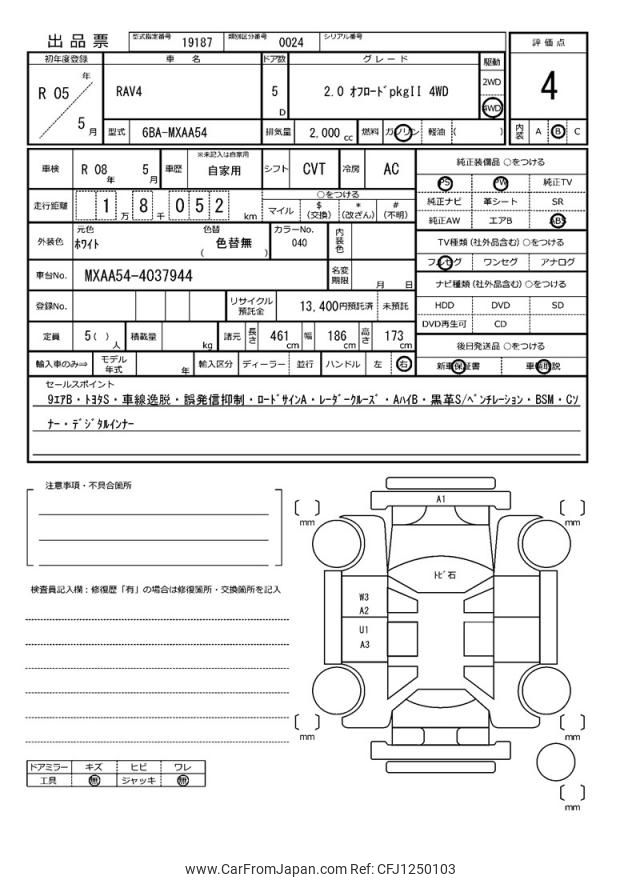 出品票
型式指定番号 19187 類別区分番号 0024 シリアル番号
評価点
4
内装 A B C
初年度登録 車名 ドア数 グレード 駆動
R 05 年 5 月
RAV4 5 D 2.0 ｵﾌﾛｰﾄﾞpkgII 4WD 2WD 4WD
型式 6BA-MXAA54 排気量 2,000 cc 燃料 ガソリン 軽油 ( )
車検 R 08 年 5 月 車歴 ※未記入は自家用 自家用 シフト CVT 冷房 AC
走行距離 1 万 8 千 0 5 2 km
○をつける
マイル $ (交換) * (改ざん) # (不明)
外装色 元色 ﾎﾜｲﾄ 色替 ( 色替無 ) カラーNo. 040 内装色
車台No. MXAA54-4037944 名変期限 月 日
登録No. リサイクル預託金 13,400円預託済 未預託
定員 5( ) 人 積載量 kg 諸元 長さ 461 cm 幅 186 cm 高さ 173 cm
輸入車のみ⇒ モデル年式 年 輸入区分 ディーラー 並行 ハンドル 左 右
純正装備品 ○をつける
PS PW 純正TV
純正ナビ 革シート SR
純正AW エアB ABS
TV種類 (社外品含む) ○をつける
フルセグ ワンセグ アナログ
ナビ種類 (社外品含む) ○をつける
HDD DVD SD
DVD再生可 CD
後日発送品 ○をつける
新車保証書 車輌取説
セールスポイント
9ｴｱB・ﾄﾖﾀS・車線逸脱・誤発信抑制・ﾛｰﾄﾞｻｲﾝA・ﾚｰﾀﾞｰｸﾙｰｽﾞ・AﾊｲB・黒革S/ﾍﾞﾝﾁﾚｰｼｮﾝ・BSM・Cｿ
ﾅｰ・ﾃﾞｼﾞﾀﾙｲﾝﾅｰ
注意事項・不具合箇所
検査員記入欄：修復歴「有」の場合は修復箇所・交換箇所を記入
A1
ﾄﾋﾞ石
W3
A2
U1
A3
mm
mm
mm
mm
mm
ドアミラー キズ ヒビ ワレ
工具 無 ジャッキ 無
www.CarFromJapan.com Ref: CFJ1250103